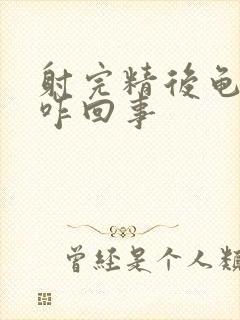 射完精後龟
咋回事
曾经是个人類